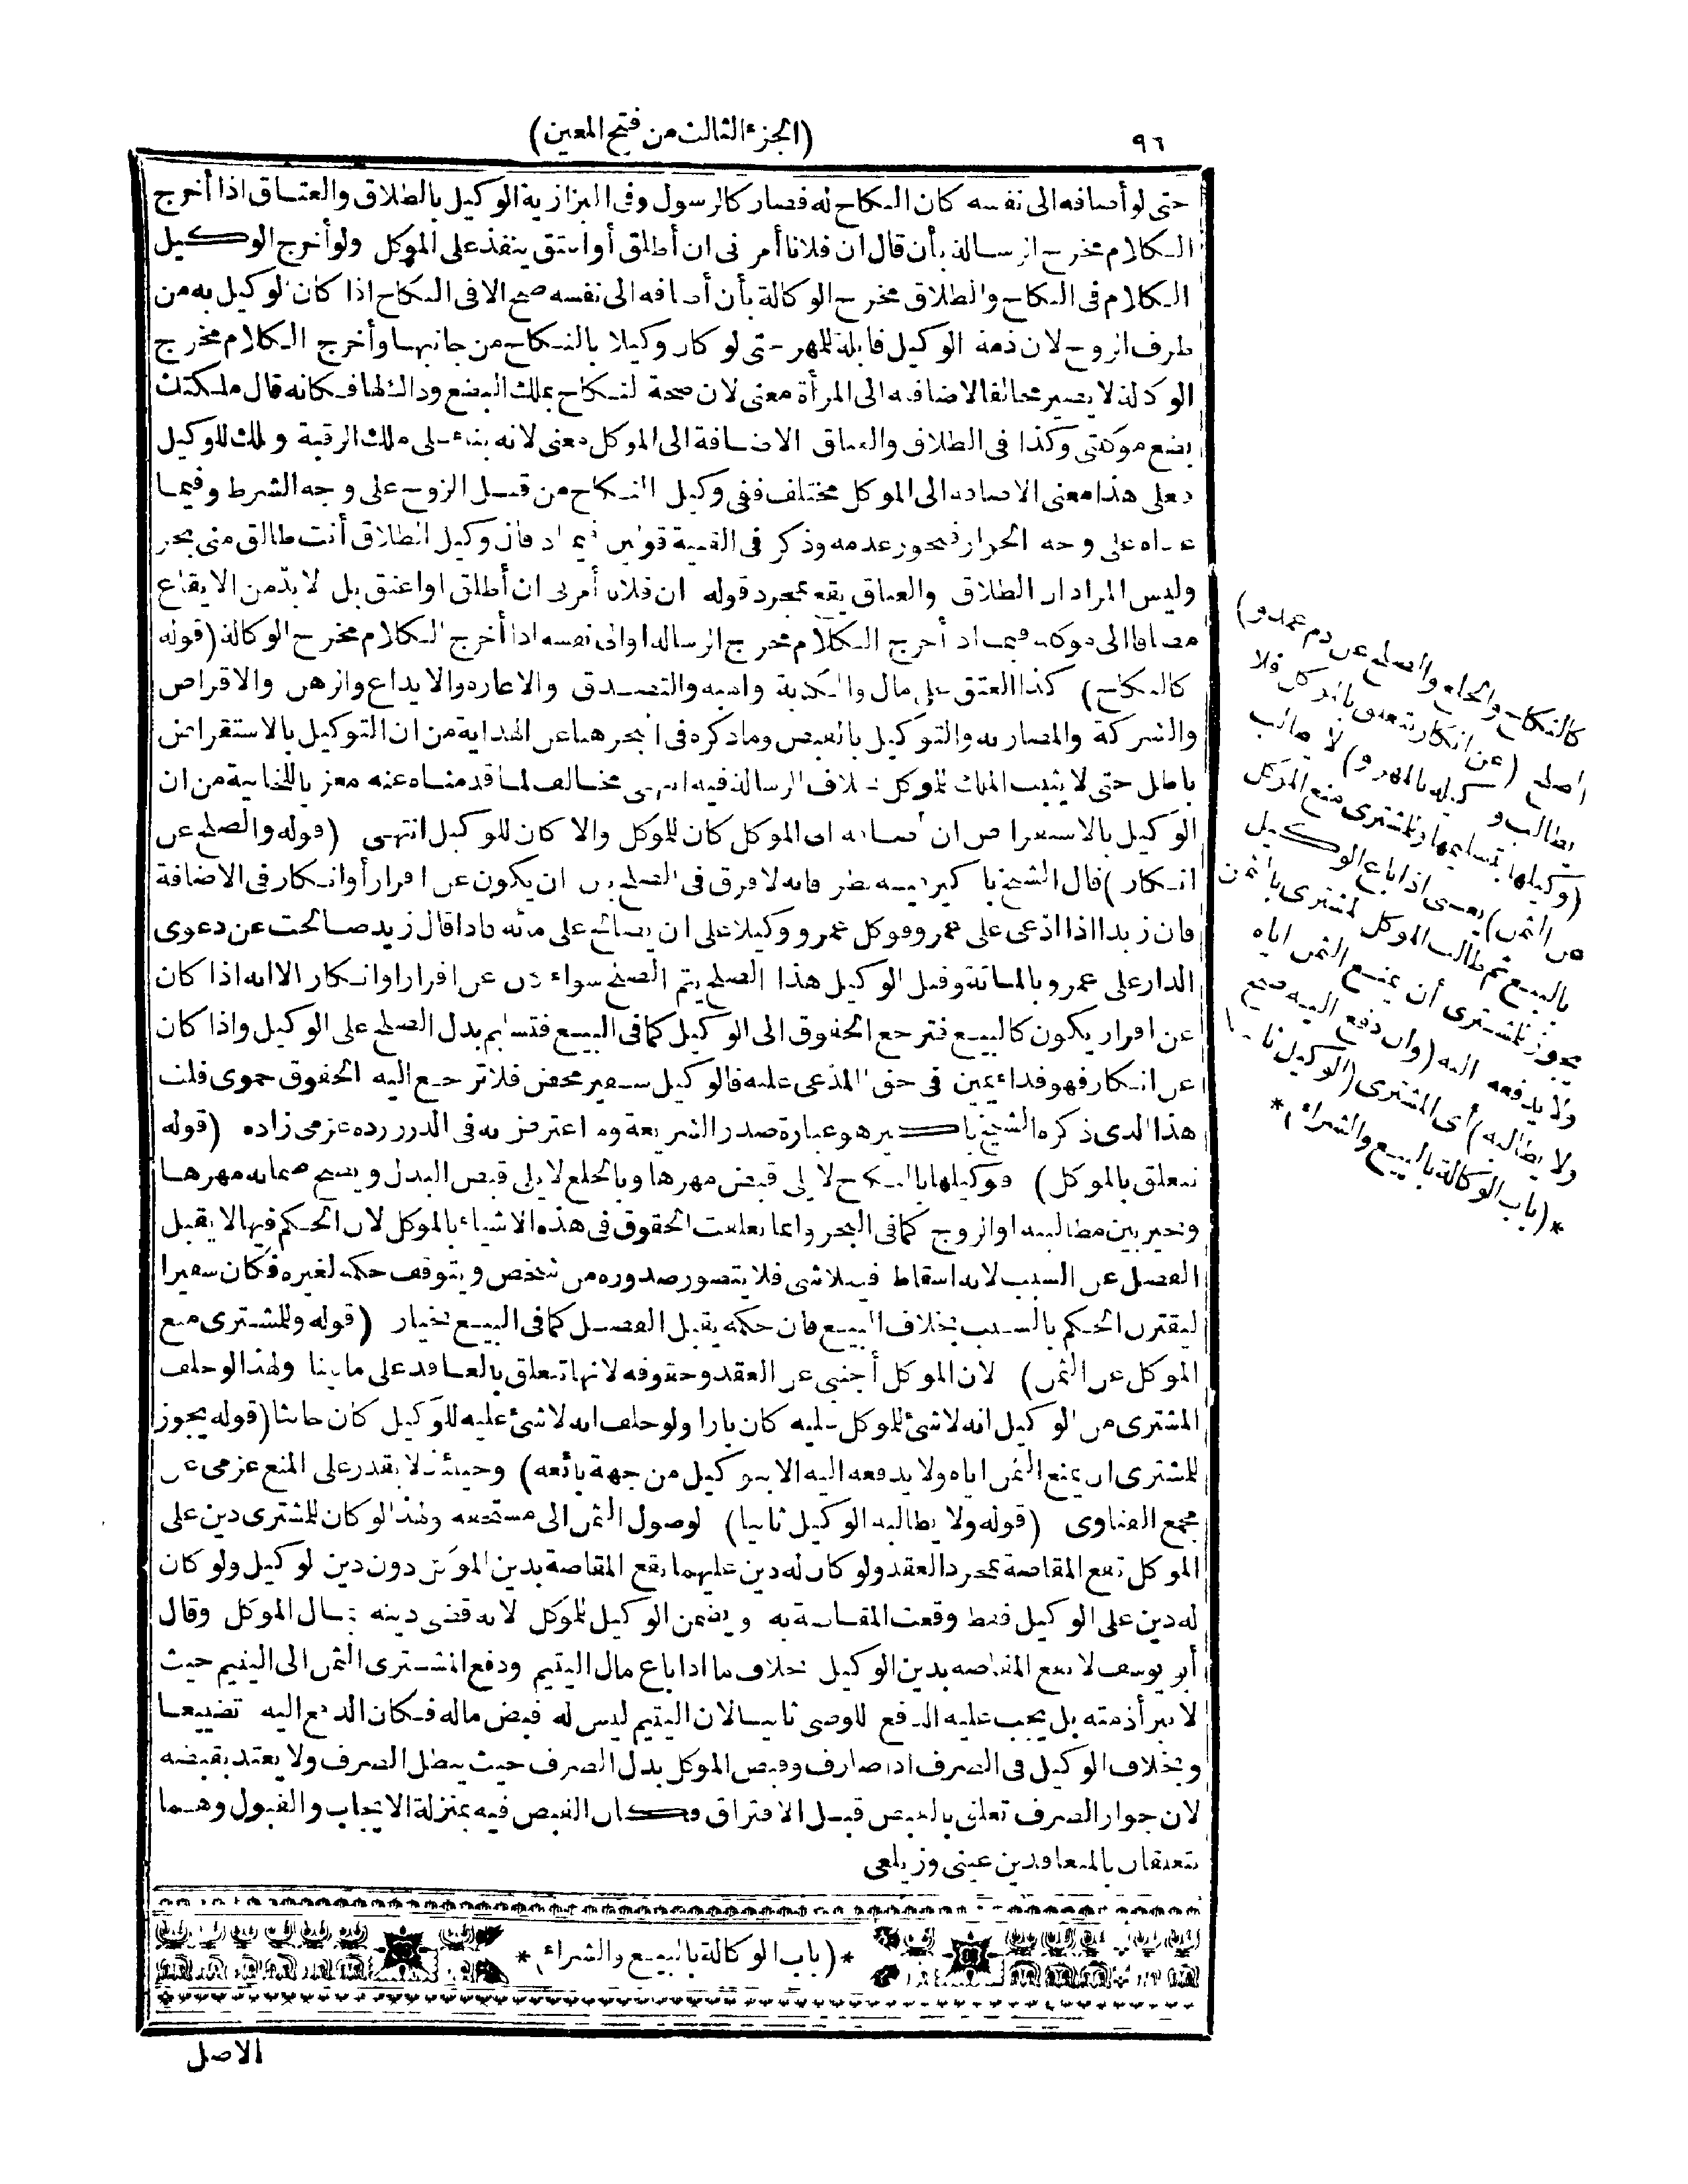 ٩٦
(الجزء الثالث من فتح المعين)
حتى لو أضافه الى نفسه كان النكاح له فصار كالرسول وفى البزازية الوكيل بالطلاق والعتاق اذا أخرج
الكلام مخرج الرسالة بأن قال ان فلانا أمرنى ان أطلق أو أعتق ينفذ على الموكل ولو أخرج الوكيل
الكلام فى النكاح والطلاق مخرج الوكالة بأن أضافه الى نفسه صح الا فى النكاح اذا كان الوكيل به من
طرف الزوج لان ذمة الوكيل قابلة للمهر حتى لو كان وكيلا بالنكاح من جانبها وأخرج الكلام مخرج
الوكالة لا يصير مخالفا لاضافته الى المرأة معنى لان صحة النكاح بملك البضع وذاك لها فكانه قال ملكتك
بضع موكلتى وكذا فى الطلاق والعتاق الاضافة الى الموكل معنى لانه بناء على ملك الرقبة وتلك للوكيل
فعلى هذا معنى الاضافة الى الموكل مختلف ففى وكيل النكاح من قبل الزوج على وجه الشرط وفيما
عداه على وجه الجواز فيجوز عدمه وذكر فى القنية قولين فيما اذا قال وكيل الطلاق أنت طالق منى بحر
وليس المراد ان الطلاق والعتاق يقع بمجرد قوله ان فلانا أمرنى ان أطلق او اعتق بل لا بدّ من الايقاع
مضافا الى موكله فيما اذا أخرج الكلام مخرج الرسالة او الى نفسه اذا أخرج الكلام مخرج الوكالة (قوله
كالنكاح) كذا العتق على مال والكتابة والهبة والتصدق والاعارة والايداع والرهن والاقراض
والشركة والمضاربة والتوكيل بالقبض وما ذكره فى البحر هنا عن الهداية من ان التوكيل بالاستقراض
باطل حتى لا يثبت الملك للموكل بخلاف الرسالة فيه انتهى مخالف لما قدمناه عنه معزيا للخانية من ان
الوكيل بالاستقراض ان أضافه الى الموكل كان للموكل والا كان للوكيل انتهى (قوله والصلح عن
انكار) قال الشيخ باكير فيه نظر فانه لا فرق فى الصلح بين ان يكون عن اقرار أو انكار فى الاضافة
فان زيدا اذا ادّعى على عمرو فوكل عمرو وكيلا على ان يصالح على مائة فاذا قال زيد صالحت عن دعوى
الدار على عمرو بالمائة وقبل الوكيل هذا الصلح يتم الصلح سواء كان عن اقرار او انكار الا انه اذا كان
عن اقرار يكون كالبيع فترجع الحقوق الى الوكيل كما فى البيع فتسليم بدل الصلح على الوكيل واذا كان
عن انكار فهو فداء يمين فى حق المدّعى عليه فالوكيل سفير محض فلا ترجع اليه الحقوق حموى قلت
هذا الذى ذكره الشيخ باكير هو عبارة صدر الشريعة وما اعترض به فى الدرر رده عزمى زاده (قوله
تتعلق بالموكل) فوكيلها بالنكاح لا يلى قبض مهرها وبالخلع لا يلى قبض البدل ويصح ضمانه مهرها
وتخير بين مطالبته او الزوج كما فى البحر وانما تعلقت الحقوق فى هذه الاشياء بالموكل لان الحكم فيها لا يقبل
الفصل عن السبب لانه اسقاط فيتلاشى فلا يتصور صدوره من شخص ويتوقف حكمه لغيره فكان سفيرا
ليقترن الحكم بالسبب بخلاف البيع فان حكمه يقبل الفصل كما فى البيع بخيار (قوله وللمشترى منع
الموكل عن الثمن) لان الموكل أجنبى عن العقد وحقوقه لانها تتعلق بالعاقد على ما بينا ولهذا لو حلف
المشترى من الوكيل انه لا شئ للموكل عليه كان بارا ولو حلف انه لا شئ عليه للوكيل كان حانثا (قوله يجوز
للمشترى ان يمنع الثمن اياه ولا يدفعه اليه الا بتوكيل من جهة بائعه) وحينئذ لا يقدر على المنع عزمى عن
مجمع الفتاوى (قوله ولا يطالبه الوكيل ثانيا) لوصول الثمن الى مستحقه ولهذا لو كان للمشترى دين على
الموكل تقع المقاصة بمجرد العقد ولو كان له دين عليهما تقع المقاصة بدين الموكل دون دين الوكيل ولو كان
له دين على الوكيل فقط وقعت المقاصة به ويضمن الوكيل للموكل لانه قضى دينه بمال الموكل وقال
أبو يوسف لا تقع المقاصة بدين الوكيل بخلاف ما اذا باع مال اليتيم ودفع المشترى الثمن الى اليتيم حيث
لا تبرأ ذمته بل يجب عليه الدفع للوصى ثانيا لان اليتيم ليس له قبض ماله فكان الدفع اليه تضييعا
وبخلاف الوكيل فى الصرف اذا صارف وقبض الموكل بدل الصرف حيث يبطل الصرف ولا يعتد بقبضه
لان جواز الصرف تعلق بالقبض قبل الافتراق وكان القبض فيه بمنزلة الايجاب والقبول وهما
يتعلقان بالمتعاقدين عينى وزيلعى
*(باب الوكالة بالبيع والشراء)*
الاصل
كالنكاح والخلع والصلح عن دم عمد و)
الصلح (عن انكار تتعلق بالموكل فلا
يطالب وكيله بالمهر و) لا يطالب
(وكيلها بتسليمها وللمشترى منع الموكل
عن الثمن) يعنى اذا باع الوكيل
بالبيع ثم طالب الموكل المشترى بالثمن
يجوز للمشترى أن يمنع الثمن اياه
ولا يدفعه اليه (وان دفع اليه صح
ولا يطالبه) أى المشترى (الوكيل ثانيا)
*(باب الوكالة بالبيع والشراء)*